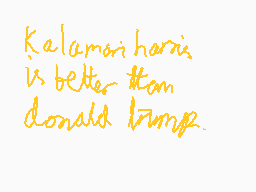 Kalamari harris
is better than
donald trump.